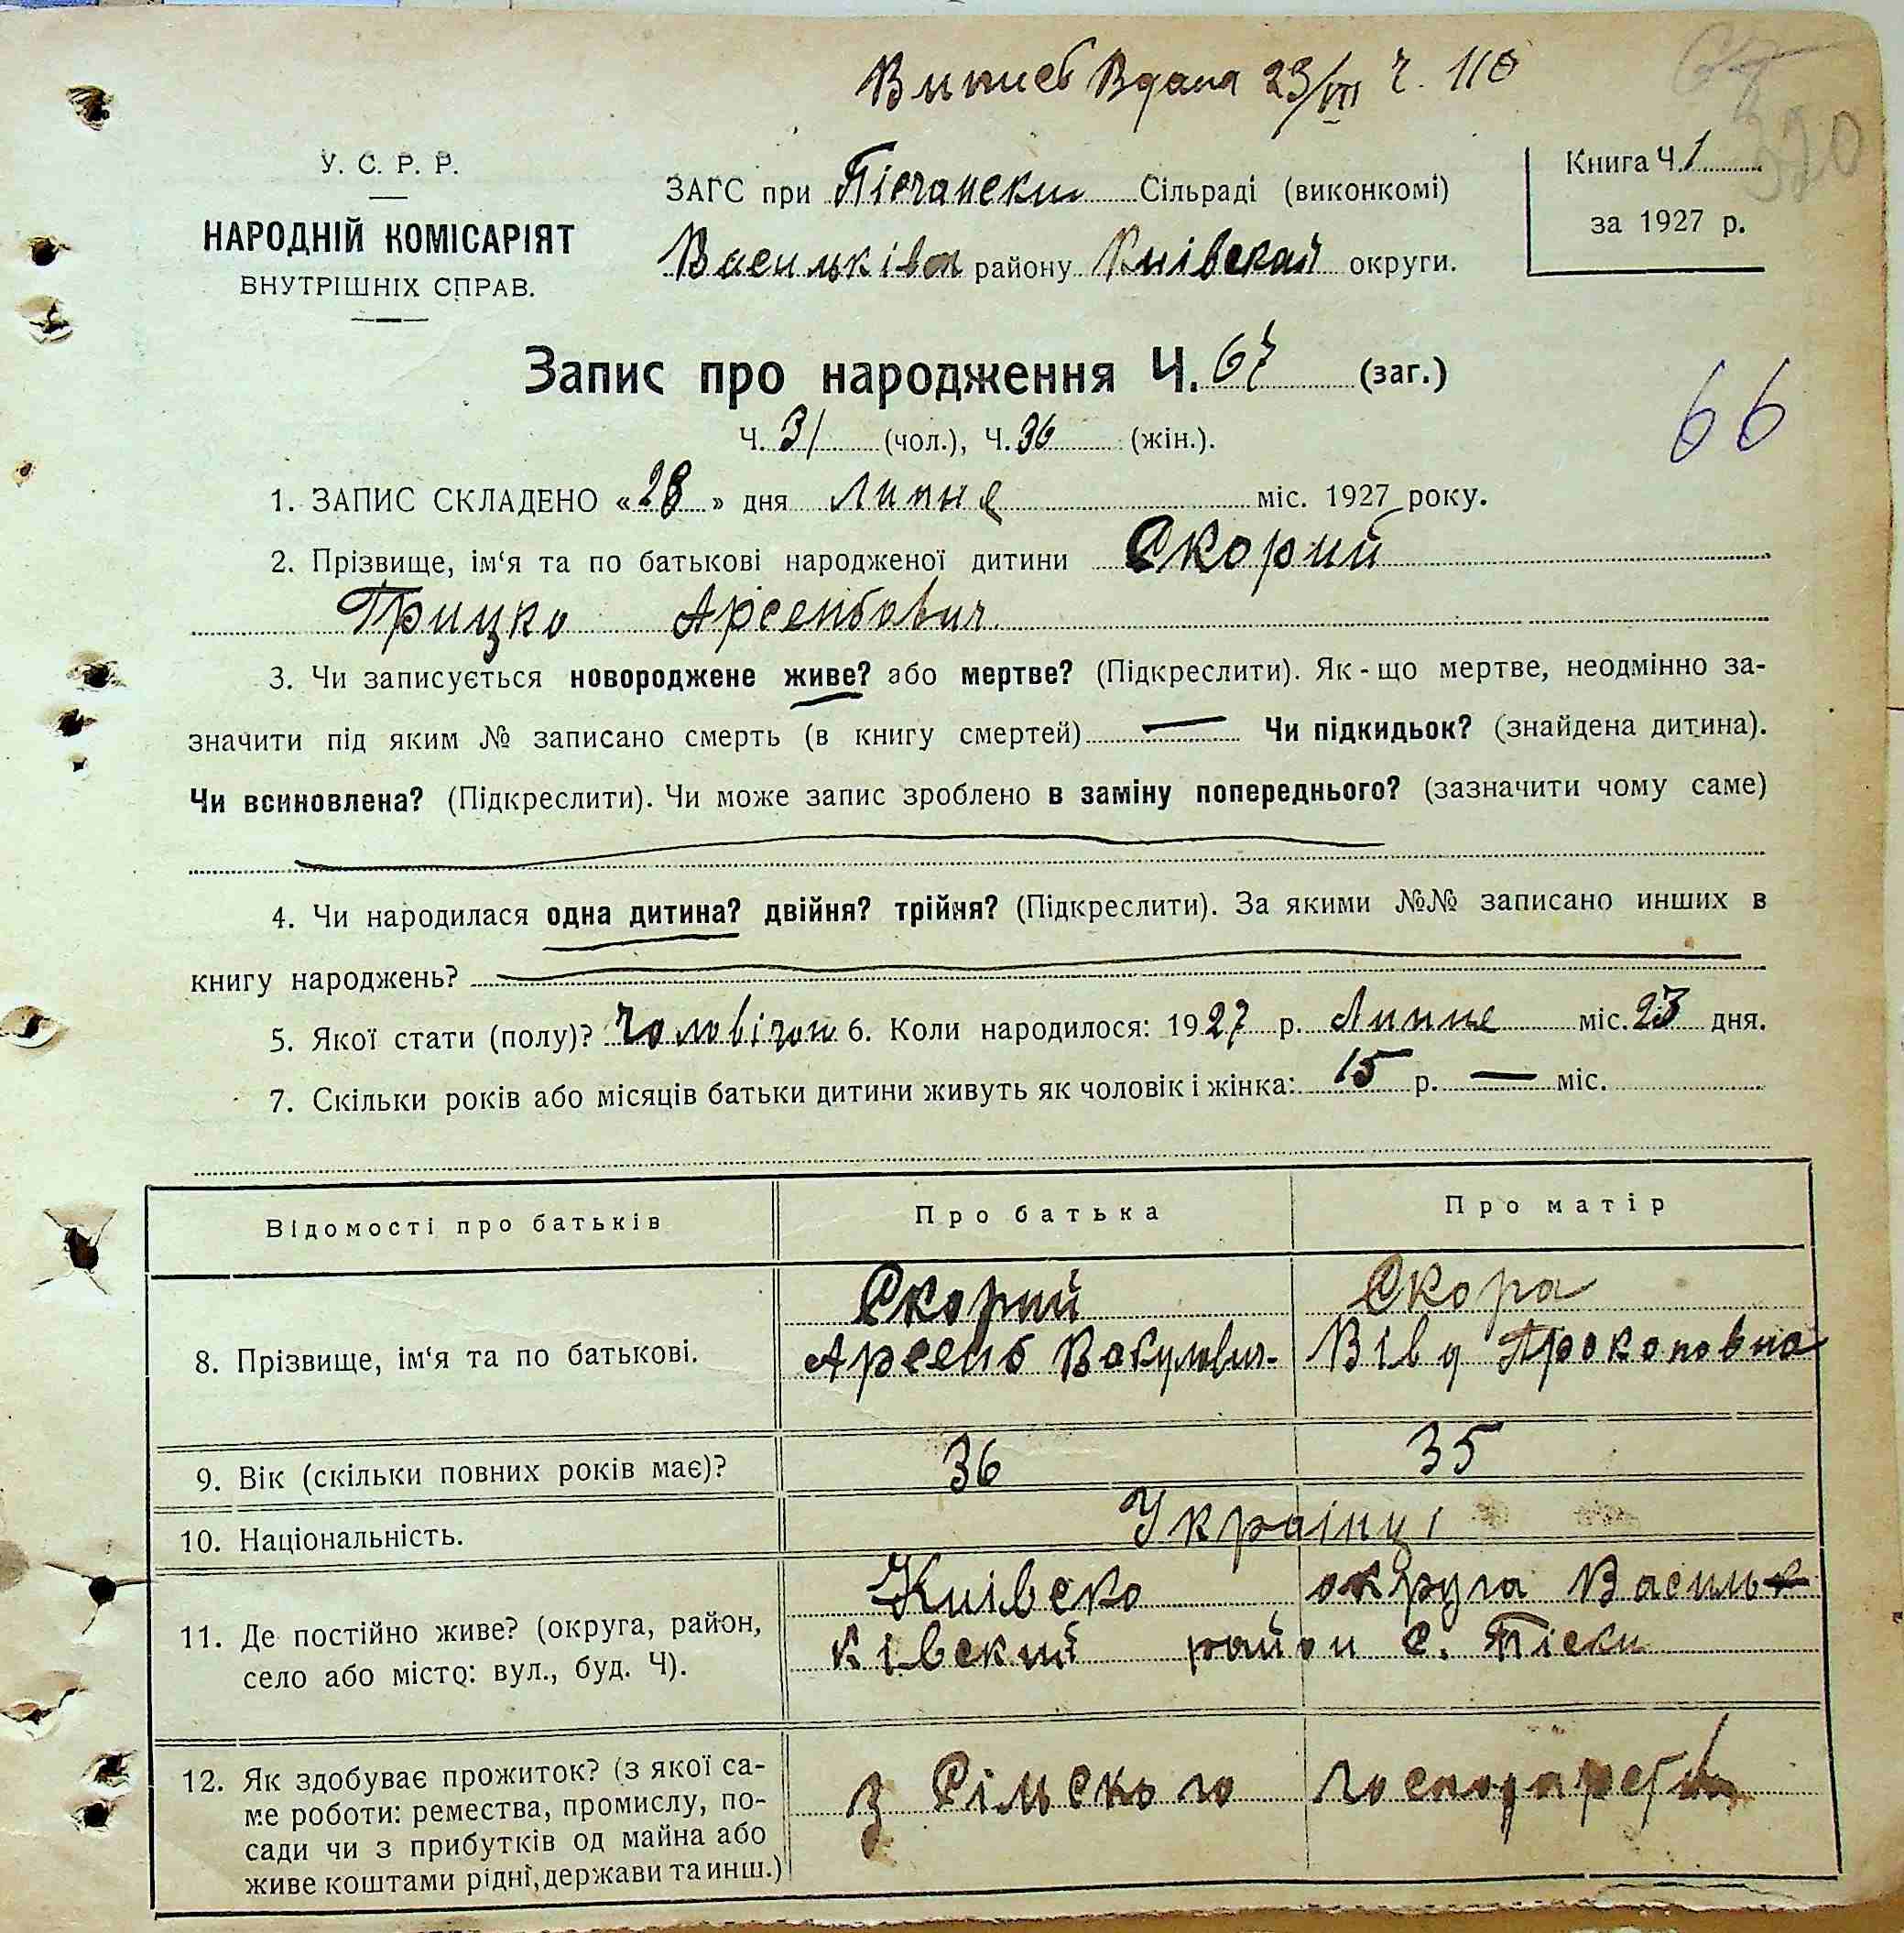 Випись Вдана 23/VIII Ч. 110
320
У. С. Р. Р.
НАРОДНІЙ КОМІСАРІЯТ
ВНУТРІШНІХ СПРАВ.
ЗАГС при Пісчанскм Сільраді (виконкомі)
Васильківск району Київскай округи.
Книга Ч. 1
за 1927 р.
Запис про народження Ч. 67 (заг.)
Ч. 31 (чол.), Ч. 36 (жін.).
66
1. ЗАПИС СКЛАДЕНО «28» дня Липня міс. 1927 року.
2. Прізвище, ім‘я та по батькові народженої дитини Скорий
Грицко Арсентьович.
3. Чи записується новороджене живе? або мертве? (Підкреслити). Як-що мертве, неодмінно за-
значити під яким № записано смерть (в книгу смертей) — Чи підкидьок? (знайдена дитина).
Чи всиновлена? (Підкреслити). Чи може запис зроблено в заміну попереднього? (зазначити чому саме)
4. Чи народилася одна дитина? двійня? трійня? (Підкреслити). За якими №№ записано инших в
книгу народжень?
5. Якої стати (полу)? Чоловічои 6. Коли народилося: 1927 р. Липне міс. 23 дня.
7. Скільки років або місяців батьки дитини живуть як чоловік і жінка: 15 р. — міс.
Відомості про батьків Про батька Про матір
Скорий Скора
8. Прізвище, ім‘я та по батькові. Арсень Вакулович. Вівд Прокоповна
9. Вік (скільки повних років має)? 36 35
10. Національність. Українці
Київско округа Василь
11. Де постійно живе? (округа, район, ківский район с. Піски
село або місто: вул., буд. Ч).
12. Як здобуває прожиток? (з якої са-
ме роботи: ремества, промислу, по- з Сільского господарства
сади чи з прибутків од майна або
живе коштами рідні, держави та инш.)